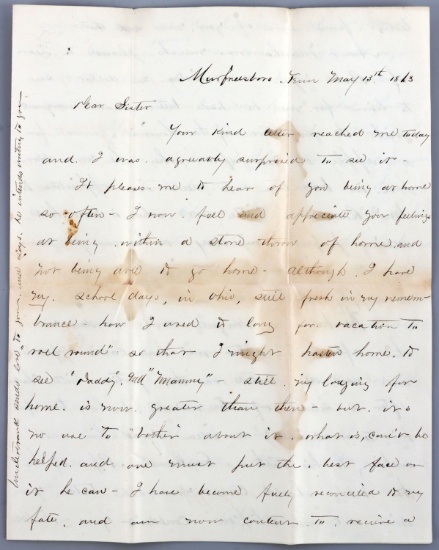 Murfreesboro. Tenn May 13th 1863
Dear Sister
Your kind letter reached me today
and I was agreeably surprised to see it -
It pleases me to hear of you being at home
so often - I now feel and appreciate your feelings
at being within a stone throw of home and
not being able to go home - although I have
my school days, in Ohio, still fresh in my remem
brance - how I used to long for vacation to
roll round" so that I might hasten home to
see "Daddy" and "Mammy" - still my longing for
home is now greater than then - but it's
no use to "bother" about it. what is, can't be
helped and one must put the best face on
it he can - I have become fully reconciled to my
fate, and am now content to receive a
sends love to you and says he intends writing to you